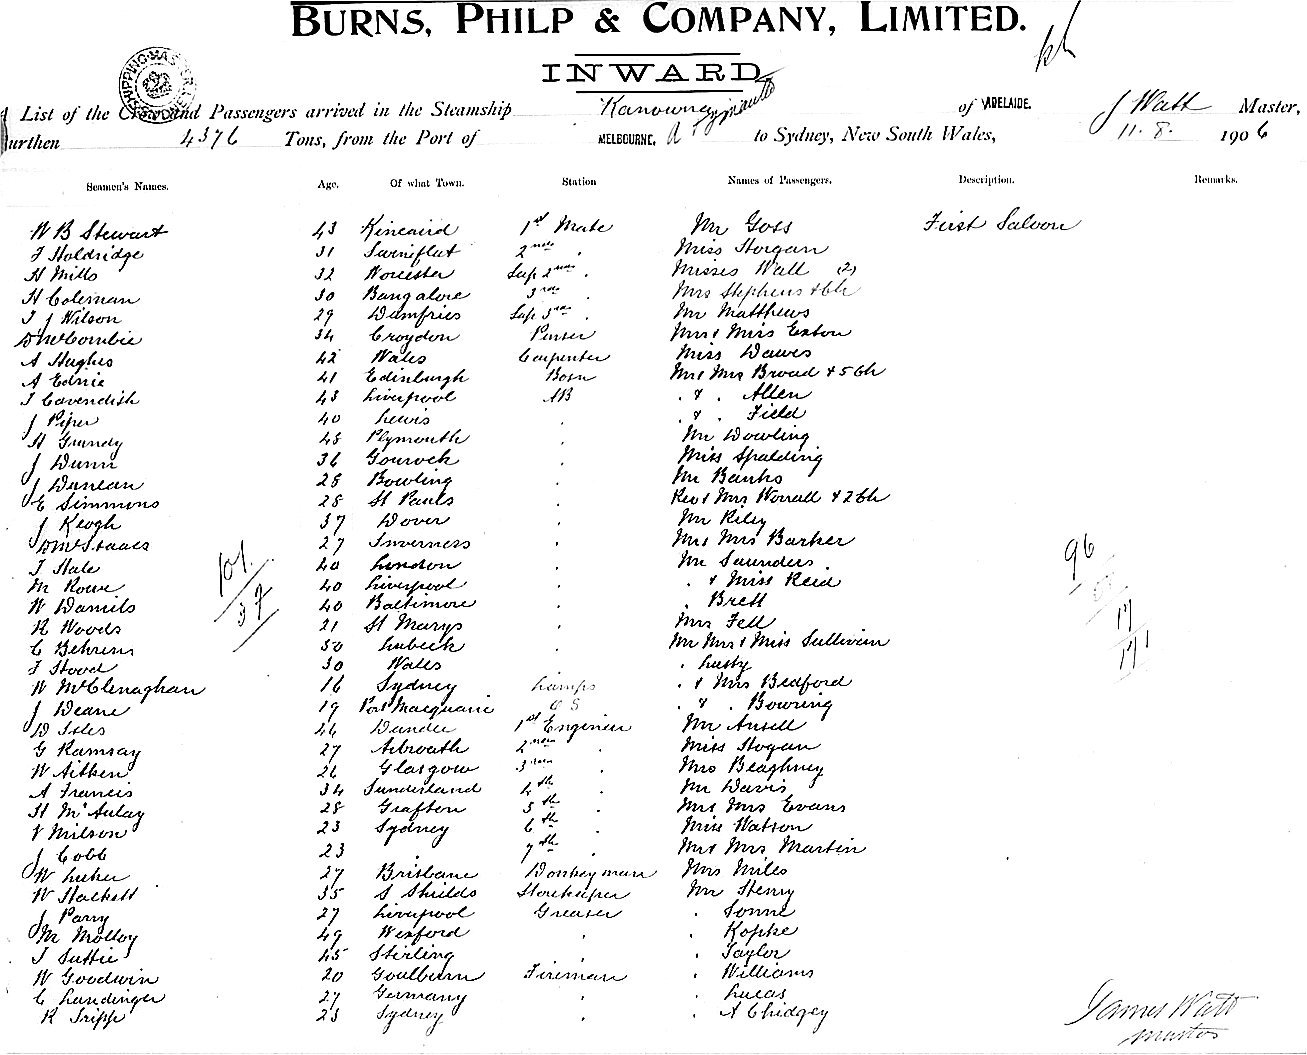 BURNS, PHILP & COMPANY, LIMITED.
INWARD
SHIPPING MASTER
List of the Crew and Passengers arrived in the Steamship Kanowna of ADELAIDE. J Watt Master,
urthen 4376 Tons, from the Port of MELBOURNE, to Sydney, New South Wales, 11. 8. 1906
Seamen's Names. Age. Of what Town. Station Names of Passengers. Description. Remarks.
W B Stewart 43 Kincaird 1st Mate Mr Goss First Saloon
F Holdridge 31 2nd . Miss Horgan
H Mills 32 Worcester Sup 2nd . Misses Wall (2)
H Coleman 30 Bangalore 3rd . Mrs Stephens & Ch
T J Wilson 29 Dumfries Sup 3rd . Mr Matthews
D McCombie 34 Croydon Purser Mr & Miss Exton
A Hughes 42 Wales Carpenter Miss Dawes
A Ednie 41 Edinburgh Bosn Mr & Mrs Broad & 5 Ch
T Cavendish 43 Liverpool AB . & . Allen
J Piper 40 Lewis . . & . Field
H Grundy 48 Plymouth . Mr Dowling
J Dunn 36 Gourock . Miss Spalding
J Duncan 28 Bowling . Mr Banks
E Simmons 28 St Pauls . Rev & Mrs Worrall & 2 Ch
J Keogh 37 Dover . Mr Riley
D McIsaacs 27 Inverness . Mr & Mrs Barker
T Hale 40 London . Mr Saunders .
M Rowe 40 Liverpool . . & Miss Reid
W Daniels 40 Baltimore . . Brett
R Woods 21 St Marys . Mrs Fell
C Behrens 50 Lubeck . Mr Mrs & Miss Sullivan
F Stood 30 Wales . . Lusty
W McClenaghan 16 Sydney Lamps . & Mrs Bedford
J Deane 19 Port Macquarie O S . & . Bowring
D Isles 46 Dundee 1st Engineer Mr Ansell
G Ramsay 27 Arbroath 2nd . Miss Hogan
W Aitken 26 Glasgow 3rd . Mrs Beaghney
A Francis 34 Sunderland 4th . Mr Davis
H McAulay 28 Grafton 5th . Mr & Mrs Evans
V Milson 23 Sydney 6th . Miss Watson
J Cobb 23 . 7th . Mr & Mrs Martin
W Luker 27 Brisbane Donkeyman Mrs Miles
W Hackett 35 S Shields Storekeeper Mr Henry
J Parry 27 Liverpool Greaser . Sonne
M Molloy 49 Wexford . . Kopke
J Suttie 45 Stirling . . Taylor
W Goodwin 20 Goulburn Fireman . Williams
C Landinger 27 Germany . . Lucas
R Tripp 23 Sydney . . A Chidgey
101
37
96
17
171
James Watt
Master